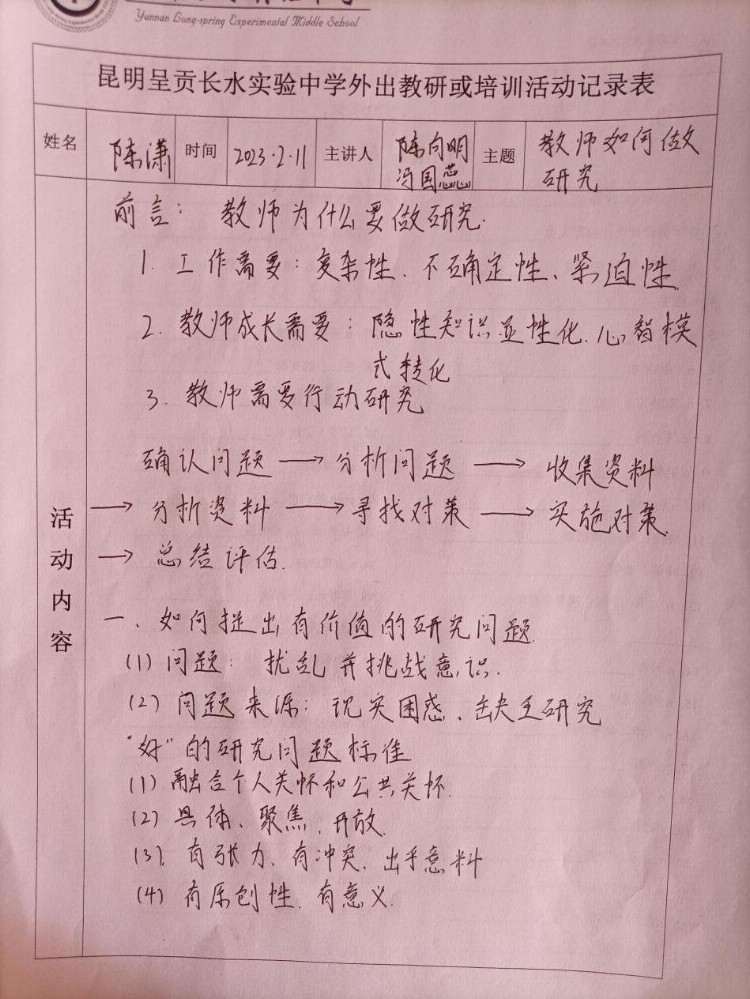 Yunnan Long-spring Experimental Middle School
昆明呈贡长水实验中学外出教研或培训活动记录表
姓名 陈潇 时间 2023.2.11 主讲人 陈向明 冯国蕊 主题 教师如何做研究
活动内容
前言：教师为什么要做研究.
1. 工作需要：复杂性、不确定性、紧迫性
2. 教师成长需要：隐性知识显性化、心智模
式转化
3. 教师需要行动研究
确认问题 → 分析问题 → 收集资料
→ 分析资料 → 寻找对策 → 实施对策
→ 总结评估.
一、如何提出有价值的研究问题
(1) 问题：扰乱并挑战意识.
(2) 问题来源：现实困惑、缺乏研究
"好"的研究问题标准
(1) 融合个人关怀和公共关怀.
(2) 具体、聚焦、开放.
(3) 有张力、有冲突、出乎意料
(4) 有原创性、有意义.